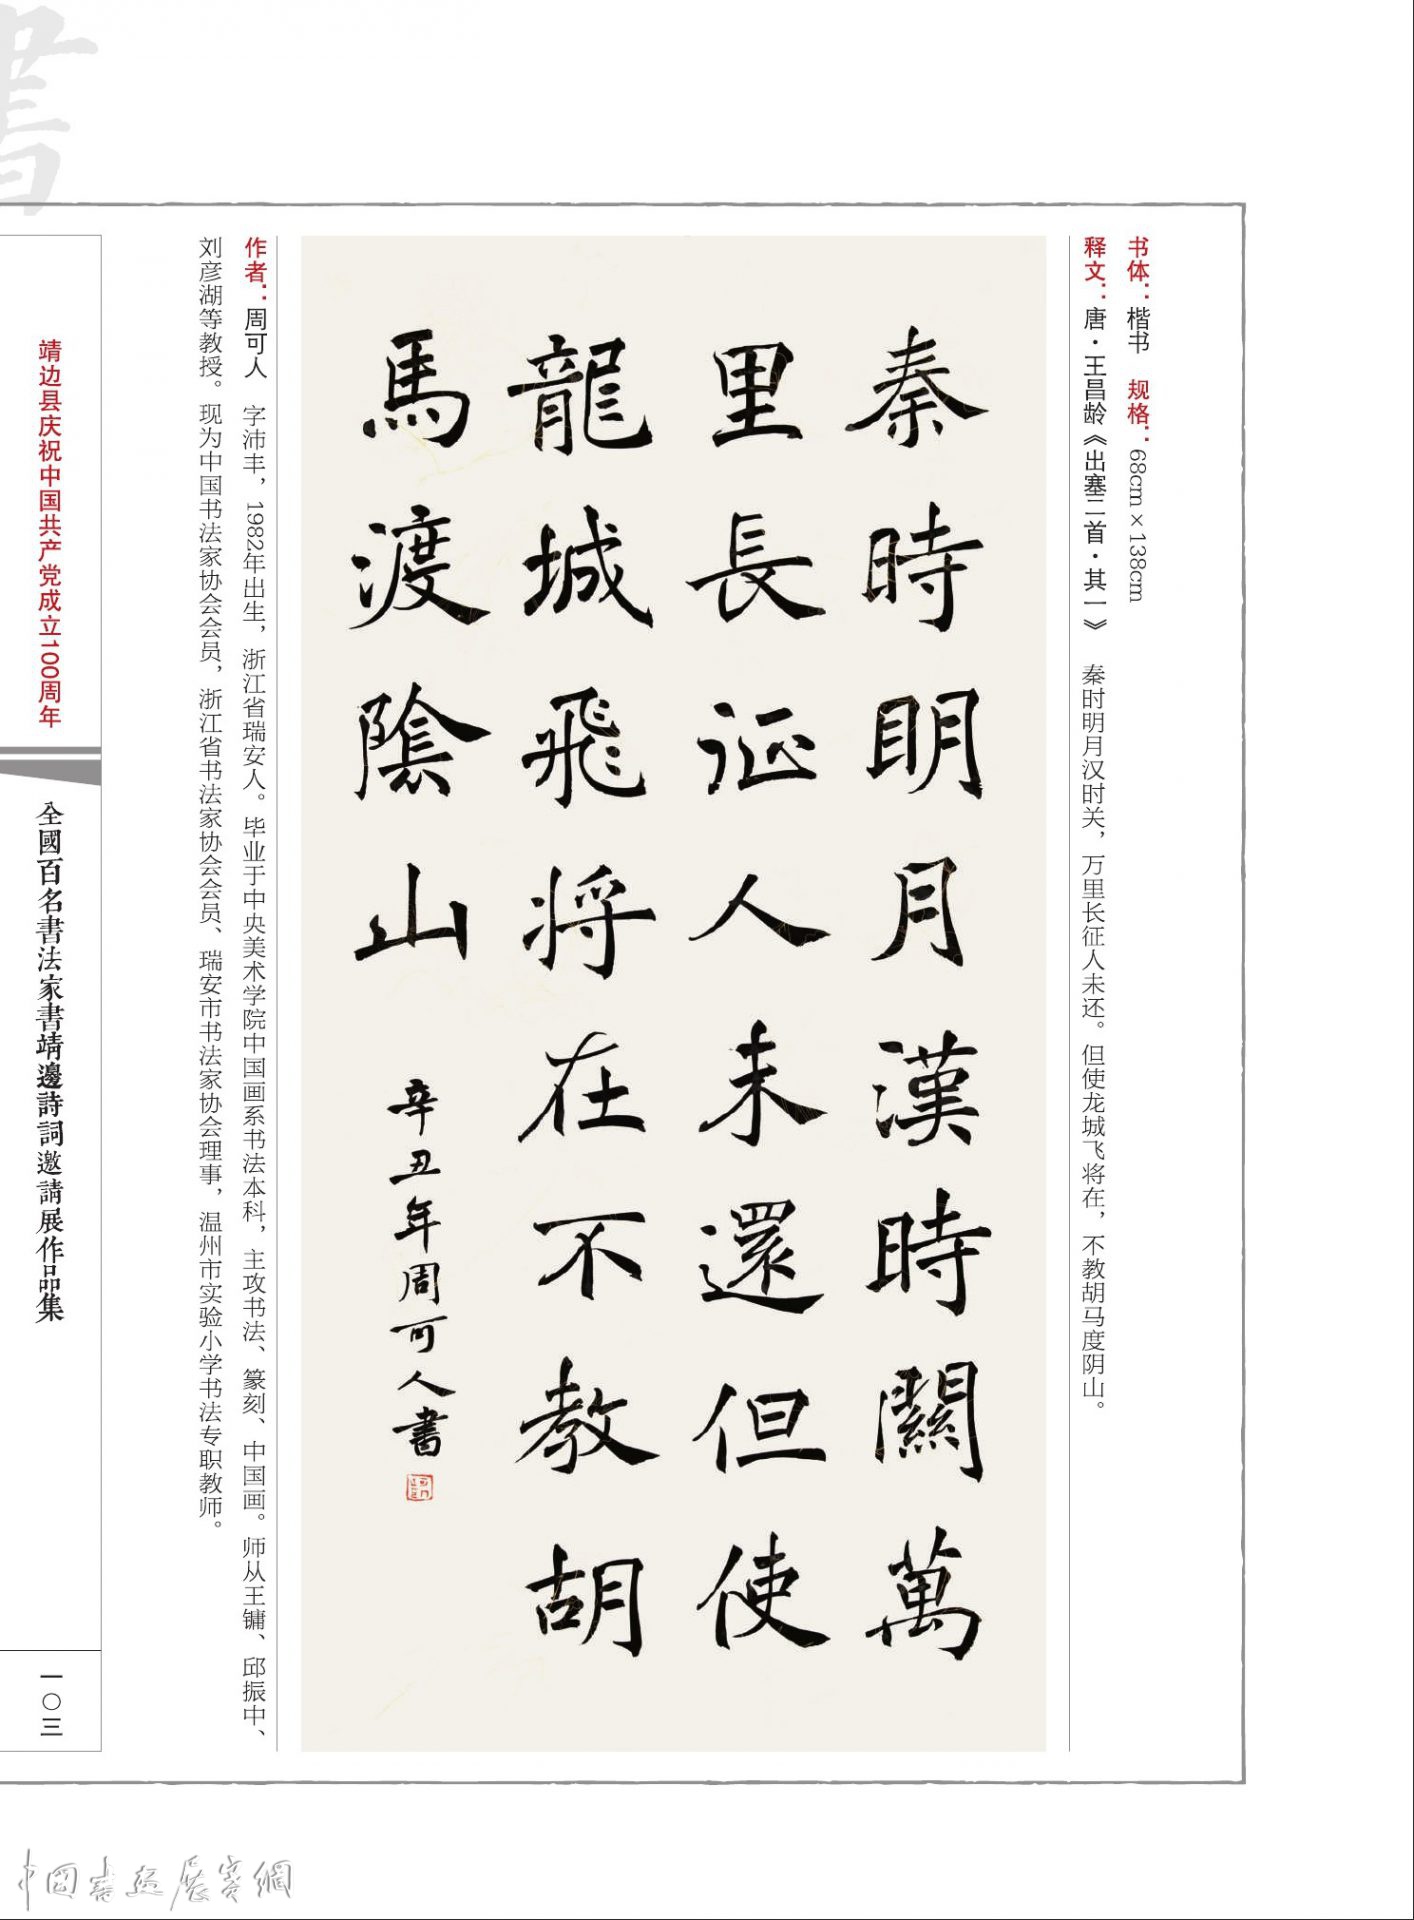 书体：楷书　规格：68cm×138cm
释文：唐·王昌龄《出塞二首·其一》　秦时明月汉时关，万里长征人未还。但使龙城飞将在，不教胡马度阴山。
秦時明月漢時關萬
里長征人未還但使
龍城飛將在不教胡
馬渡陰山
辛丑年周可人書
作者：周可人　字沛丰，1982年出生，浙江省瑞安人。毕业于中央美术学院中国画系书法本科，主攻书法、篆刻、中国画。师从王镛、邱振中、
刘彦湖等教授。现为中国书法家协会会员，浙江省书法家协会会员、瑞安市书法家协会理事，温州市实验小学书法专职教师。
靖边县庆祝中国共产党成立100周年
全國百名書法家書靖邊詩詞邀請展作品集
一〇三
書
中國書画展賽網